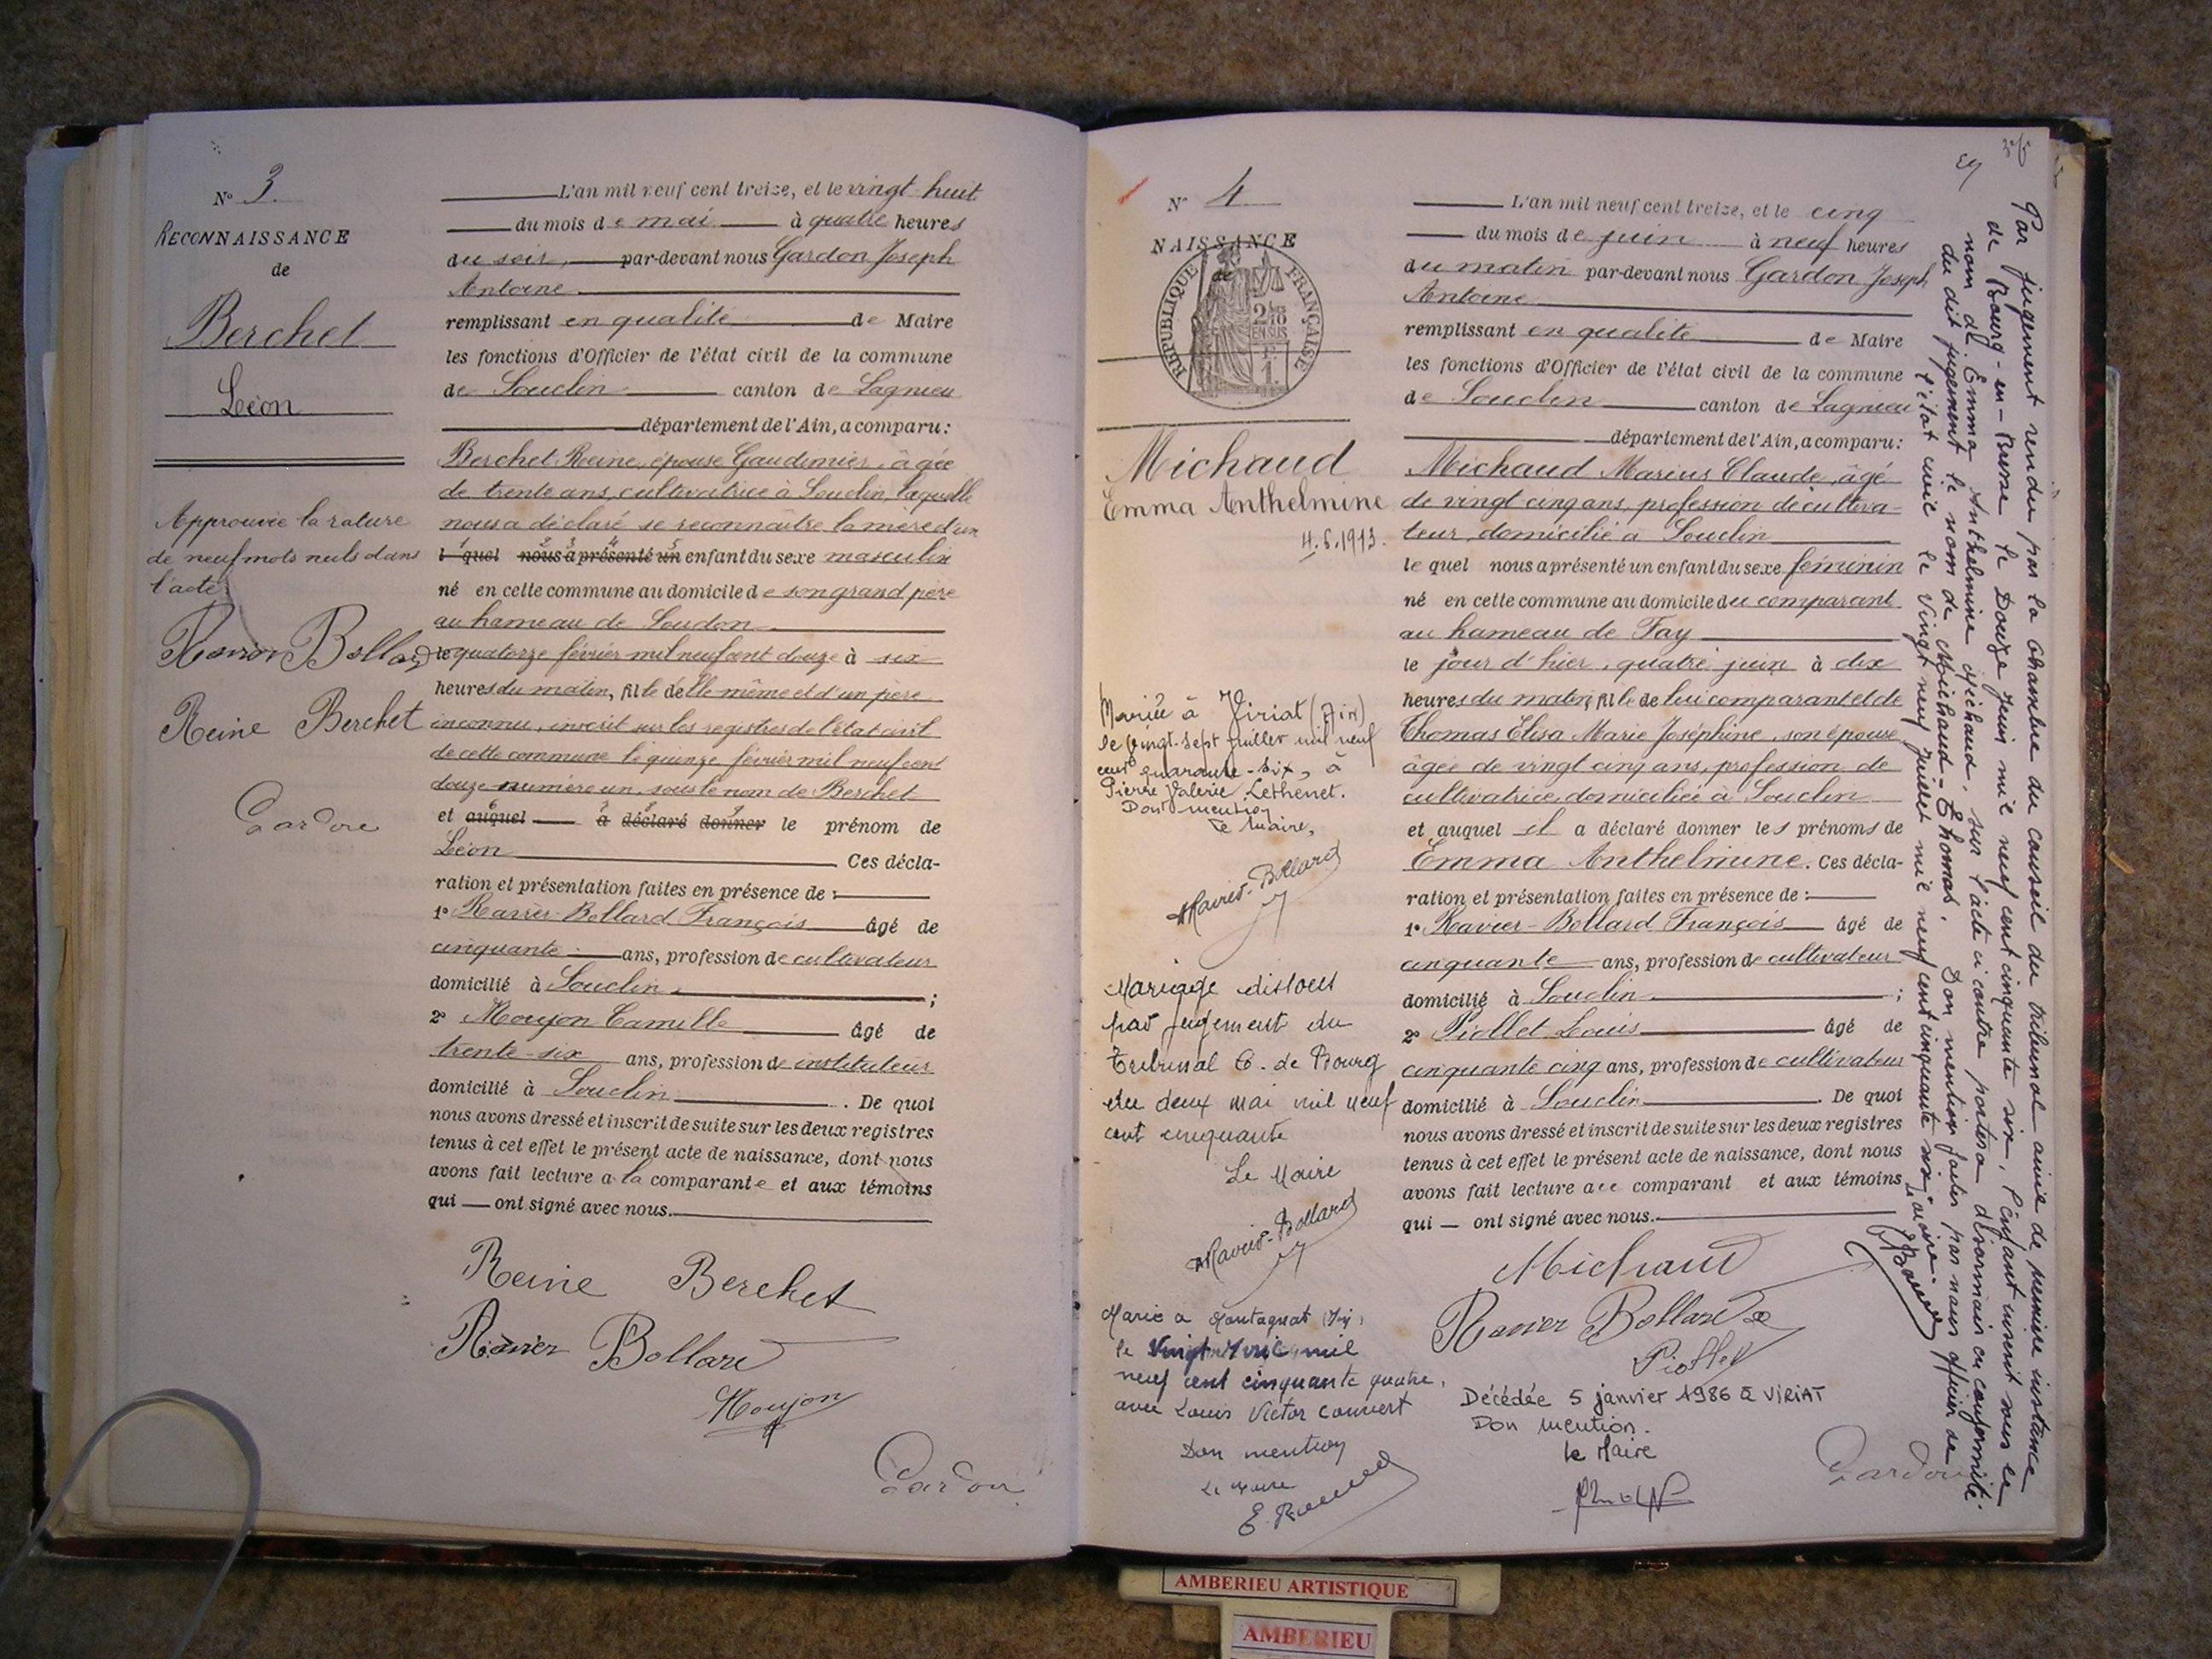 N° 3.
RECONNAISSANCE
de
Berchet
Léon
Approuvée la rature
de neuf mots nuls dans
l'acte.
Ravier Bollard
Reine Berchet
Gardon
L'an mil neuf cent treize, et le vingt huit
du mois de mai à quatre heures
du soir, par-devant nous Gardon Joseph
Antoine
remplissant en qualité de Maire
les fonctions d'Officier de l'état civil de la commune
de Souclin canton de Lagnieu
département de l'Ain, a comparu :
Berchet Reine, épouse Gaudimier, âgée
de trente ans, cultivatrice à Souclin, laquelle
nous a déclaré se reconnaître la mère d'un
1 2 3 4 5
l quel nous a présenté un enfant du sexe masculin
né en cette commune au domicile de son grand père
au hameau de Soudon
le quatorze février mil neuf cent douze à six
heures du matin, fils de elle même et d'un père
inconnu, inscrit sur les registres de l'état civil
de cette commune le quinze février mil neuf cent
douze numéro un, sous le nom de Berchet
6 7 8 9
et auquel a déclaré donner le prénom de
Léon Ces décla-
ration et présentation faites en présence de :
1° Ravier-Bollard François âgé de
cinquante ans, profession de cultivateur
domicilié à Souclin ;
2° Moujon Camille âgé de
trente-six ans, profession de instituteur
domicilié à Souclin . De quoi
nous avons dressé et inscrit de suite sur les deux registres
tenus à cet effet le présent acte de naissance, dont nous
avons fait lecture a la comparante et aux témoins
qui — ont signé avec nous.
Reine Berchet
Ravier Bollard
Moujon
Gardon
N° 4
NAISSANCE
de
REPUBLIQUE FRANÇAISE
2/10
EN SUS
1 F.
Michaud
Emma Anthelmine
4.6.1913.
Mariée à Viriat (Ain)
le vingt-sept juillet mil neuf
cent quarante-six, à
Pierre Valerie Lethenet.
Dont mention
Le Maire,
Ravier-Bollard
Mariage dissous
par jugement du
Tribunal C. de Bourg
du deux mai mil neuf
cent cinquante
Le Maire
Ravier-Bollard
Marié a Montagnat (Ain)
le vingt Avril mil
neuf cent cinquante quatre,
avec Louis Victor Convert
Don mention
Le Maire
L'an mil neuf cent treize, et le cinq
du mois de juin à neuf heures
du matin par-devant nous Gardon Joseph
Antoine
remplissant en qualité de Maire
les fonctions d'Officier de l'état civil de la commune
de Souclin canton de Lagnieu
département de l'Ain, a comparu :
Michaud Marius Claude, âgé
de vingt cinq ans, profession de cultiva-
teur, domicilié à Souclin
le quel nous a présenté un enfant du sexe féminin
né en cette commune au domicile du comparant
au hameau de Fay
le jour d'hier, quatre juin à dix
heures du matin, fille de lui comparant et de
Thomas Elisa Marie Joséphine, son épouse
âgée de vingt cinq ans, profession de
cultivatrice, domiciliée à Souclin
et auquel il a déclaré donner les prénoms de
Emma Anthelmine. Ces décla-
ration et présentation faites en présence de :
1° Ravier-Bollard François âgé de
cinquante ans, profession de cultivateur
domicilié à Souclin ;
2° Piollet Louis âgé de
cinquante cinq ans, profession de cultivateur
domicilié à Souclin . De quoi
nous avons dressé et inscrit de suite sur les deux registres
tenus à cet effet le présent acte de naissance, dont nous
avons fait lecture au comparant et aux témoins
qui — ont signé avec nous.
Michaud
Ravier Bollard
Piollet
Décédée 5 janvier 1986 à VIRIAT
Don mention.
Le Maire
Gardon
Par jugement rendu par la chambre du conseil du tribunal civil de première instance
de Bourg-en-Bresse le Douze Juin mil neuf cent cinquante six, l'enfant inscrit sous le
nom de Emma Anthelmine Michaud, sur l'acte ci contre portera désormais en conformité
du dit jugement le nom de Michaud-Thomas. Don mention faites par nous officier de
l'état civil le Vingt neuf Juillet mil neuf cent cinquante six, Le Maire.
AMBERIEU ARTISTIQUE
AMBERIEU